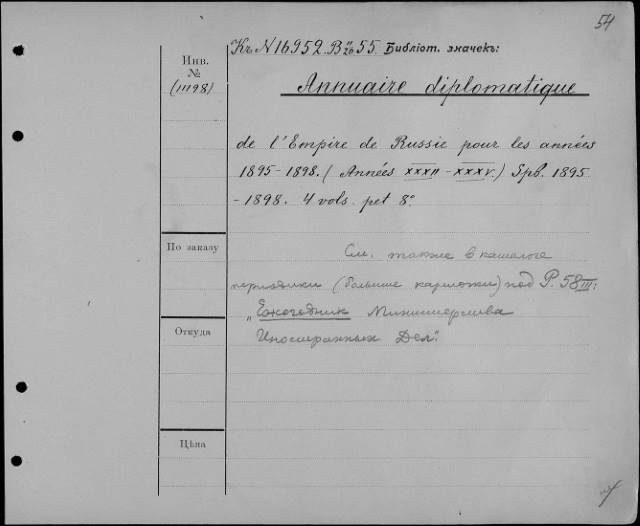 54
Къ N 16952. В II/26 55. Библіот. значекъ:
Инв.
№
(11198)
Annuaire diplomatique
de l'Empire de Russie pour les années
1895-1898. (Années XXXII - XXXV.) Spb. 1895
- 1898. 4 vols. pet 8°.
По заказу
См. также в каталоге
периодики (большие карточки) под P. 58 III:
„Ежегодник Министерства
Иностранных Дел".
Откуда
Цѣна